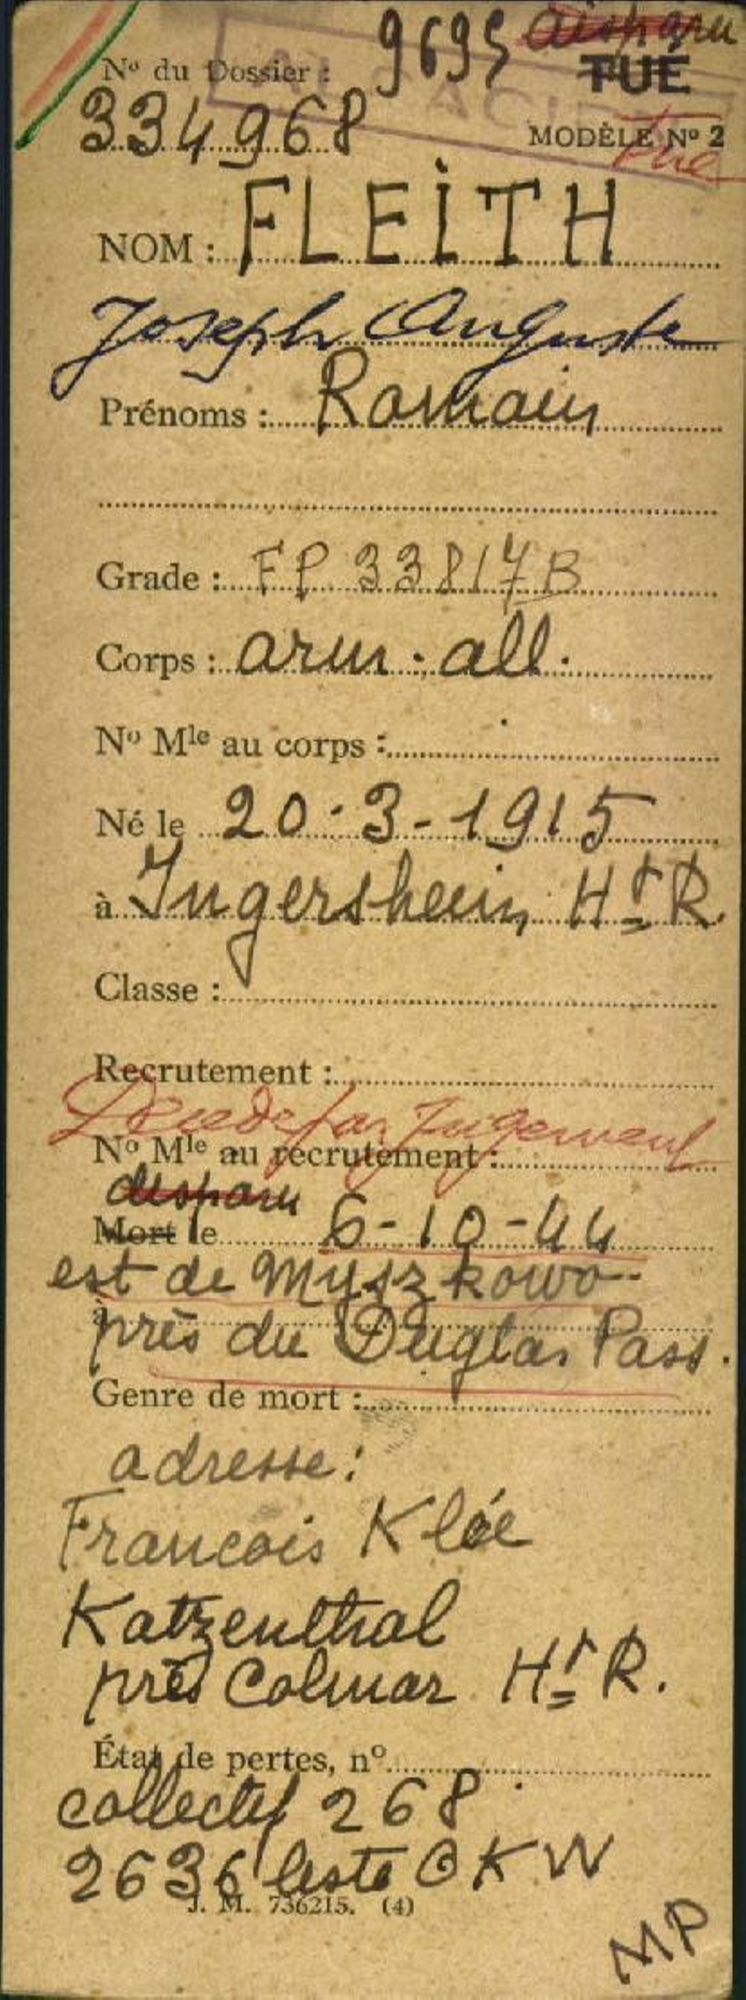 9695 disparu
N° du Dossier : TUÉ
334968
MODÈLE N° 2
tué
NOM : FLEITH
Joseph Auguste
Prénoms : Romain
Grade : FP 33817B
Corps : arm. all.
N° Mle au corps :
Né le 20-3-1915
à Ingersheim Ht R.
Classe :
Recrutement :
Décédé par Jugement
N° Mle au recrutement :
disparu
Mort le 6-10-44
est de Myszkowo
à
près du Duglas Pass.
Genre de mort :
adresse :
Francois Klée
Katzenthal
près Colmar Ht R.
État de pertes, n°
collectif 268
2636 liste OKW
J. M. 736215. (4)
MP